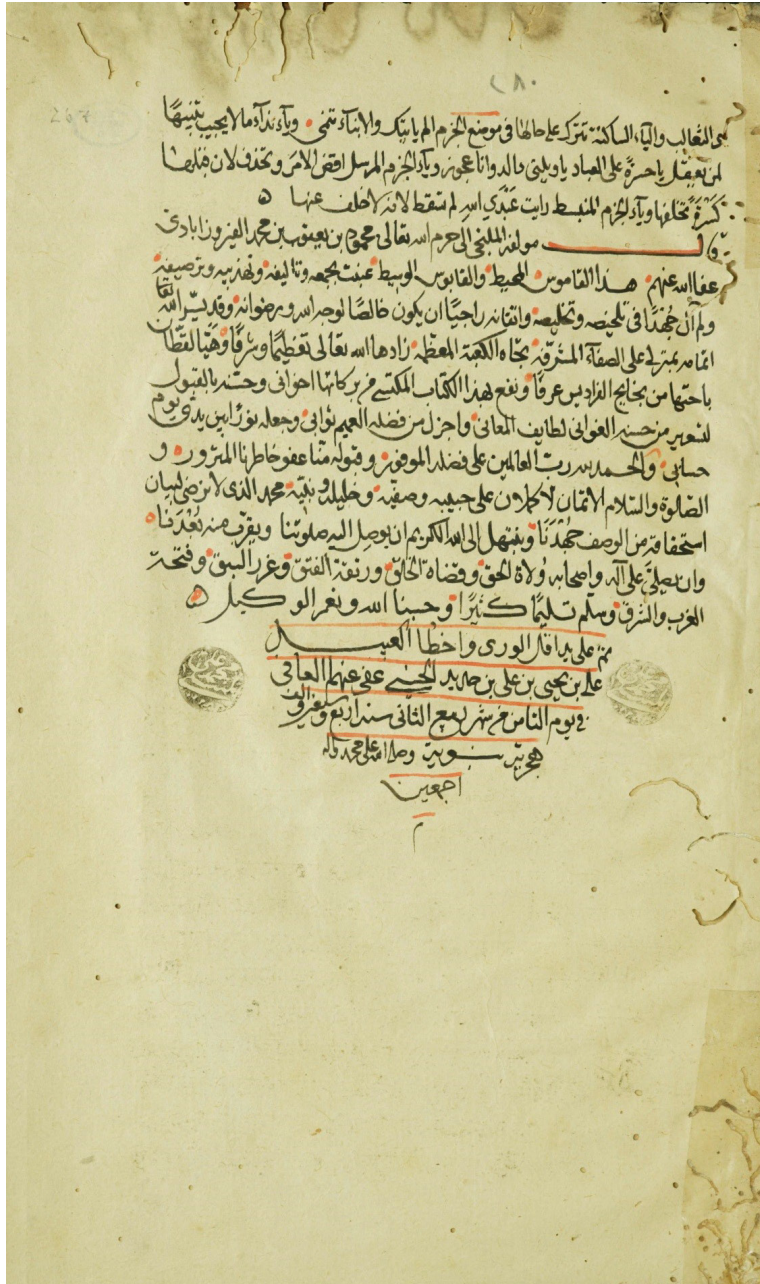 ٢٨٠
من الثعالب والياء الساكنة تترك على حالها في موضع الجزم الم ياتيك والانباء تنمى وياء نداء ما لا يجيب تشبيهًا
لمن يعقل يا حسرةً على العباد يا ويلتى ءالد وانا عجوز وياء الجزم المرسل اقض الامر وتحذف لان قبلها
كسرةً تخلفها وياء الجزم المنبسط رايت عَبْدَيِ اللهِ لم تسقط لانه لا خلف عنها ه
وقال مولفه الملتجي الى حرم الله تعالى محمد بن يعقوب بن محمد الفيروزابادى
عفا الله عنهم هذا القاموس المحيط والقابوس الوسيط عنيت بجمعه وتاليفه وتهذيبه وترصيفه
ولم آل جُهْدًا في تلخيصه وتخليصه واتقانه راجيًا ان يكون خالصًا لوجه الله ورضوانه وقد يسّر الله تعالى
اتمامه بمنزلي على الصفا المشرفة تجاه الكعبة المعظمة زادها الله تعالى تعظيمًا وشرفًا وهَيّا لقطّان
باحتها من بحابح الفراديس غرفًا ونفع بهذا الكتاب المكتسي من بركاتها اخواني وحسّنه بالقبول
لتعير من حسنه الغواني لطايف المعاني واجزل من فضله العميم ثوابي وجعله نورًا بين يدى يوم
حسابي والحمد لله ربّ العالمين على فضله الموفور وقبوله منّا عفو خاطرنا المنزور و
الصّلوة والسّلام الاتمّان الاكملان على حبيبه وصفيّه وخليله ونبيّه محمد الذى لا يرضى لبيان
استحقاقه من الوصف جُهْدَنا ونبتهل الى الله الكريم ان يوصل اليه صلوتنا ويقرّب منه بُعْدَنا
وان يصلّي على آله واصحابه وُلاة الحق وقضاة الخلق ورتقة الفتق وغرر السبق وفتحة
الغرب والشرق وسلم تسليمًا كثيرًا وحسبنا الله ونعم الوكيل ه
تم على يد اقل الورى واخطا العبيد
علي بن يحيى بن علي بن الحسني عفى عنهم العافي
في يوم الثامن من شهر ربيع الثاني سنه اربع والف
هجريه نبويه وصلى الله على محمد واله
اجمعين
م